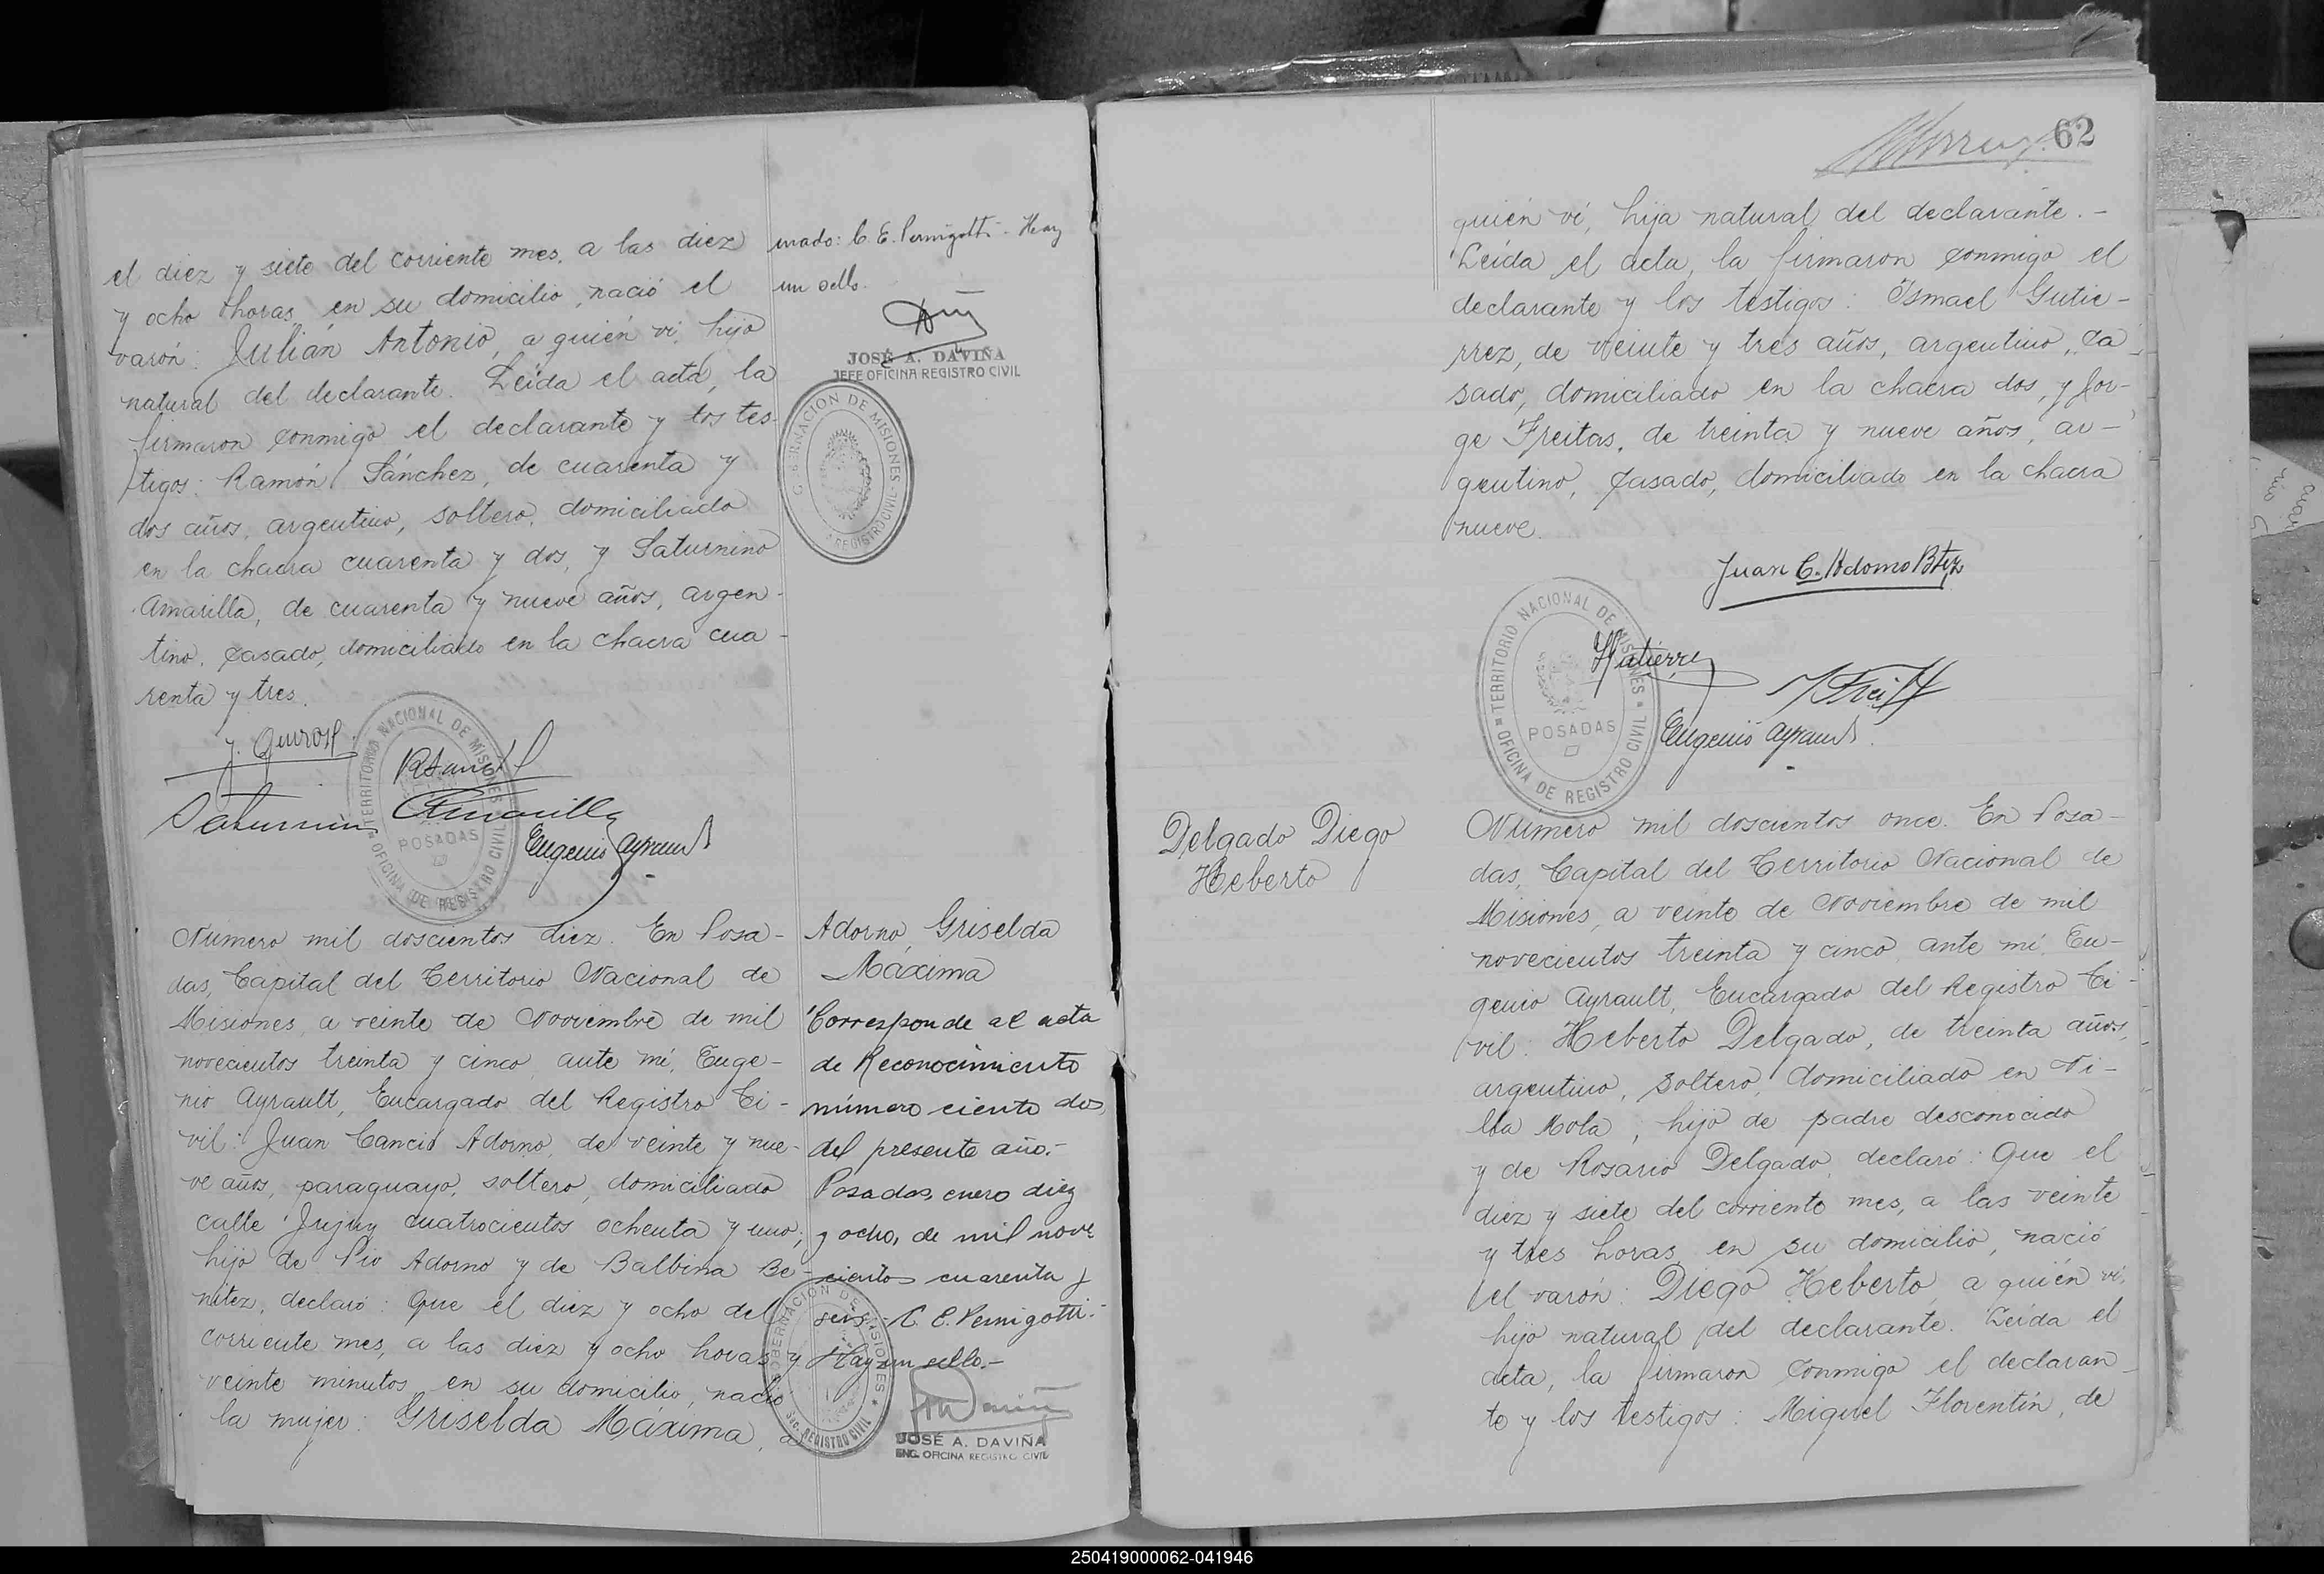 el diez y siete del corriente mes, a las diez
y ocho horas, en su domicilio, nació el
varón: Julián Antonio, a quién vi, hijo
natural del declarante. Leída el acta, la
firmaron conmigo el declarante y los tes-
tigos: Ramón Sánchez, de cuarenta y
dos años, argentino, soltero, domiciliado
en la chacra cuarenta y dos, y Saturnino
Amarilla, de cuarenta y nueve años, argen-
tino, casado, domiciliado en la chacra cua-
renta y tres.
Saturnino Amarilla
Eugenio Ayrault
TERRITORIO NACIONAL DE MISIONES
POSADAS
OFICINA DE REGISTRO CIVIL
mado: C. E. Pernigotti - Hay
un sello.
JOSÉ A. DAVIÑA
JEFE OFICINA REGISTRO CIVIL
GOBERNACION DE MISIONES
REGISTRO CIVIL
Número mil doscientos diez. En Posa-
das, Capital del Territorio Nacional de
Misiones, a veinte de Noviembre de mil
novecientos treinta y cinco, ante mí, Euge-
nio Ayrault, Encargado del Registro Ci-
vil: Juan Cancio Adorno, de veinte y nue-
ve años, paraguayo, soltero, domiciliado
calle Jujuy cuatrocientos ochenta y uno;
hijo de Pio Adorno y de Balbina Be-
nítez, declaró: Que el diez y ocho del
corriente mes, a las diez y ocho horas y
veinte minutos, en su domicilio, nació
la mujer: Griselda Máxima, a
Adorno, Griselda
Máxima
Corresponde al acta
de Reconocimiento
número ciento dos
del presente año.-
Posadas, enero diez
y ocho, de mil nove
cientos cuarenta y
seis.- C. E. Pernigotti.-
Hay un sello.-
GOBERNACION DE MISIONES
SEC. REGISTRO CIVIL
JOSÉ A. DAVIÑA
ENC. OFICINA REGISTRO CIVIL
62
quién vi, hija natural del declarante.-
Leída el acta, la firmaron conmigo el
declarante y los testigos: Ismael Gutie-
rrez, de veinte y tres años, argentino, ca-
sado, domiciliado en la chacra dos, y Jor-
ge Freitas, de treinta y nueve años, ar-
gentino, casado, domiciliado en la chacra
nueve.
Juan C. Adorno Btez
Gutierrez
Eugenio Ayrault
TERRITORIO NACIONAL DE MISIONES
POSADAS
OFICINA DE REGISTRO CIVIL
Delgado Diego
Heberto
Número mil doscientos once. En Posa-
das, Capital del Territorio Nacional de
Misiones, a veinte de Noviembre de mil
novecientos treinta y cinco, ante mí, Eu-
genio Ayrault, Encargado del Registro Ci-
vil: Heberto Delgado, de treinta años,
argentino, soltero, domiciliado en Vi-
lla Mola, hijo de padre desconocido
y de Rosario Delgado, declaró: Que el
diez y siete del corriente mes, a las veinte
y tres horas, en su domicilio, nació
el varón: Diego Heberto, a quién vi,
hijo natural del declarante. Leída el
acta, la firmaron conmigo el declaran-
te y los testigos: Miguel Florentín, de
250419000062-041946